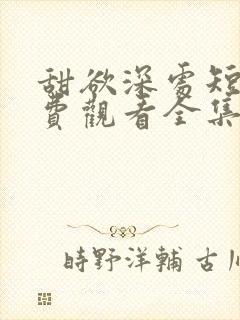 甜欲深處短
費觀看全集
時野洋輔 古川